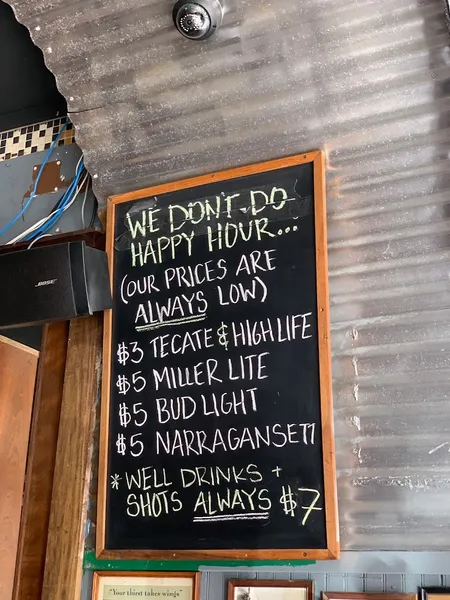 WE DON'T DO
HAPPY HOUR...
(OUR PRICES ARE
ALWAYS LOW)
$3 TECATE & HIGH LIFE
$5 MILLER LITE
$5 BUD LIGHT
$5 NARRAGANSETT
* WELL DRINKS +
SHOTS ALWAYS $7
BOSE
"Your thirst takes wings"